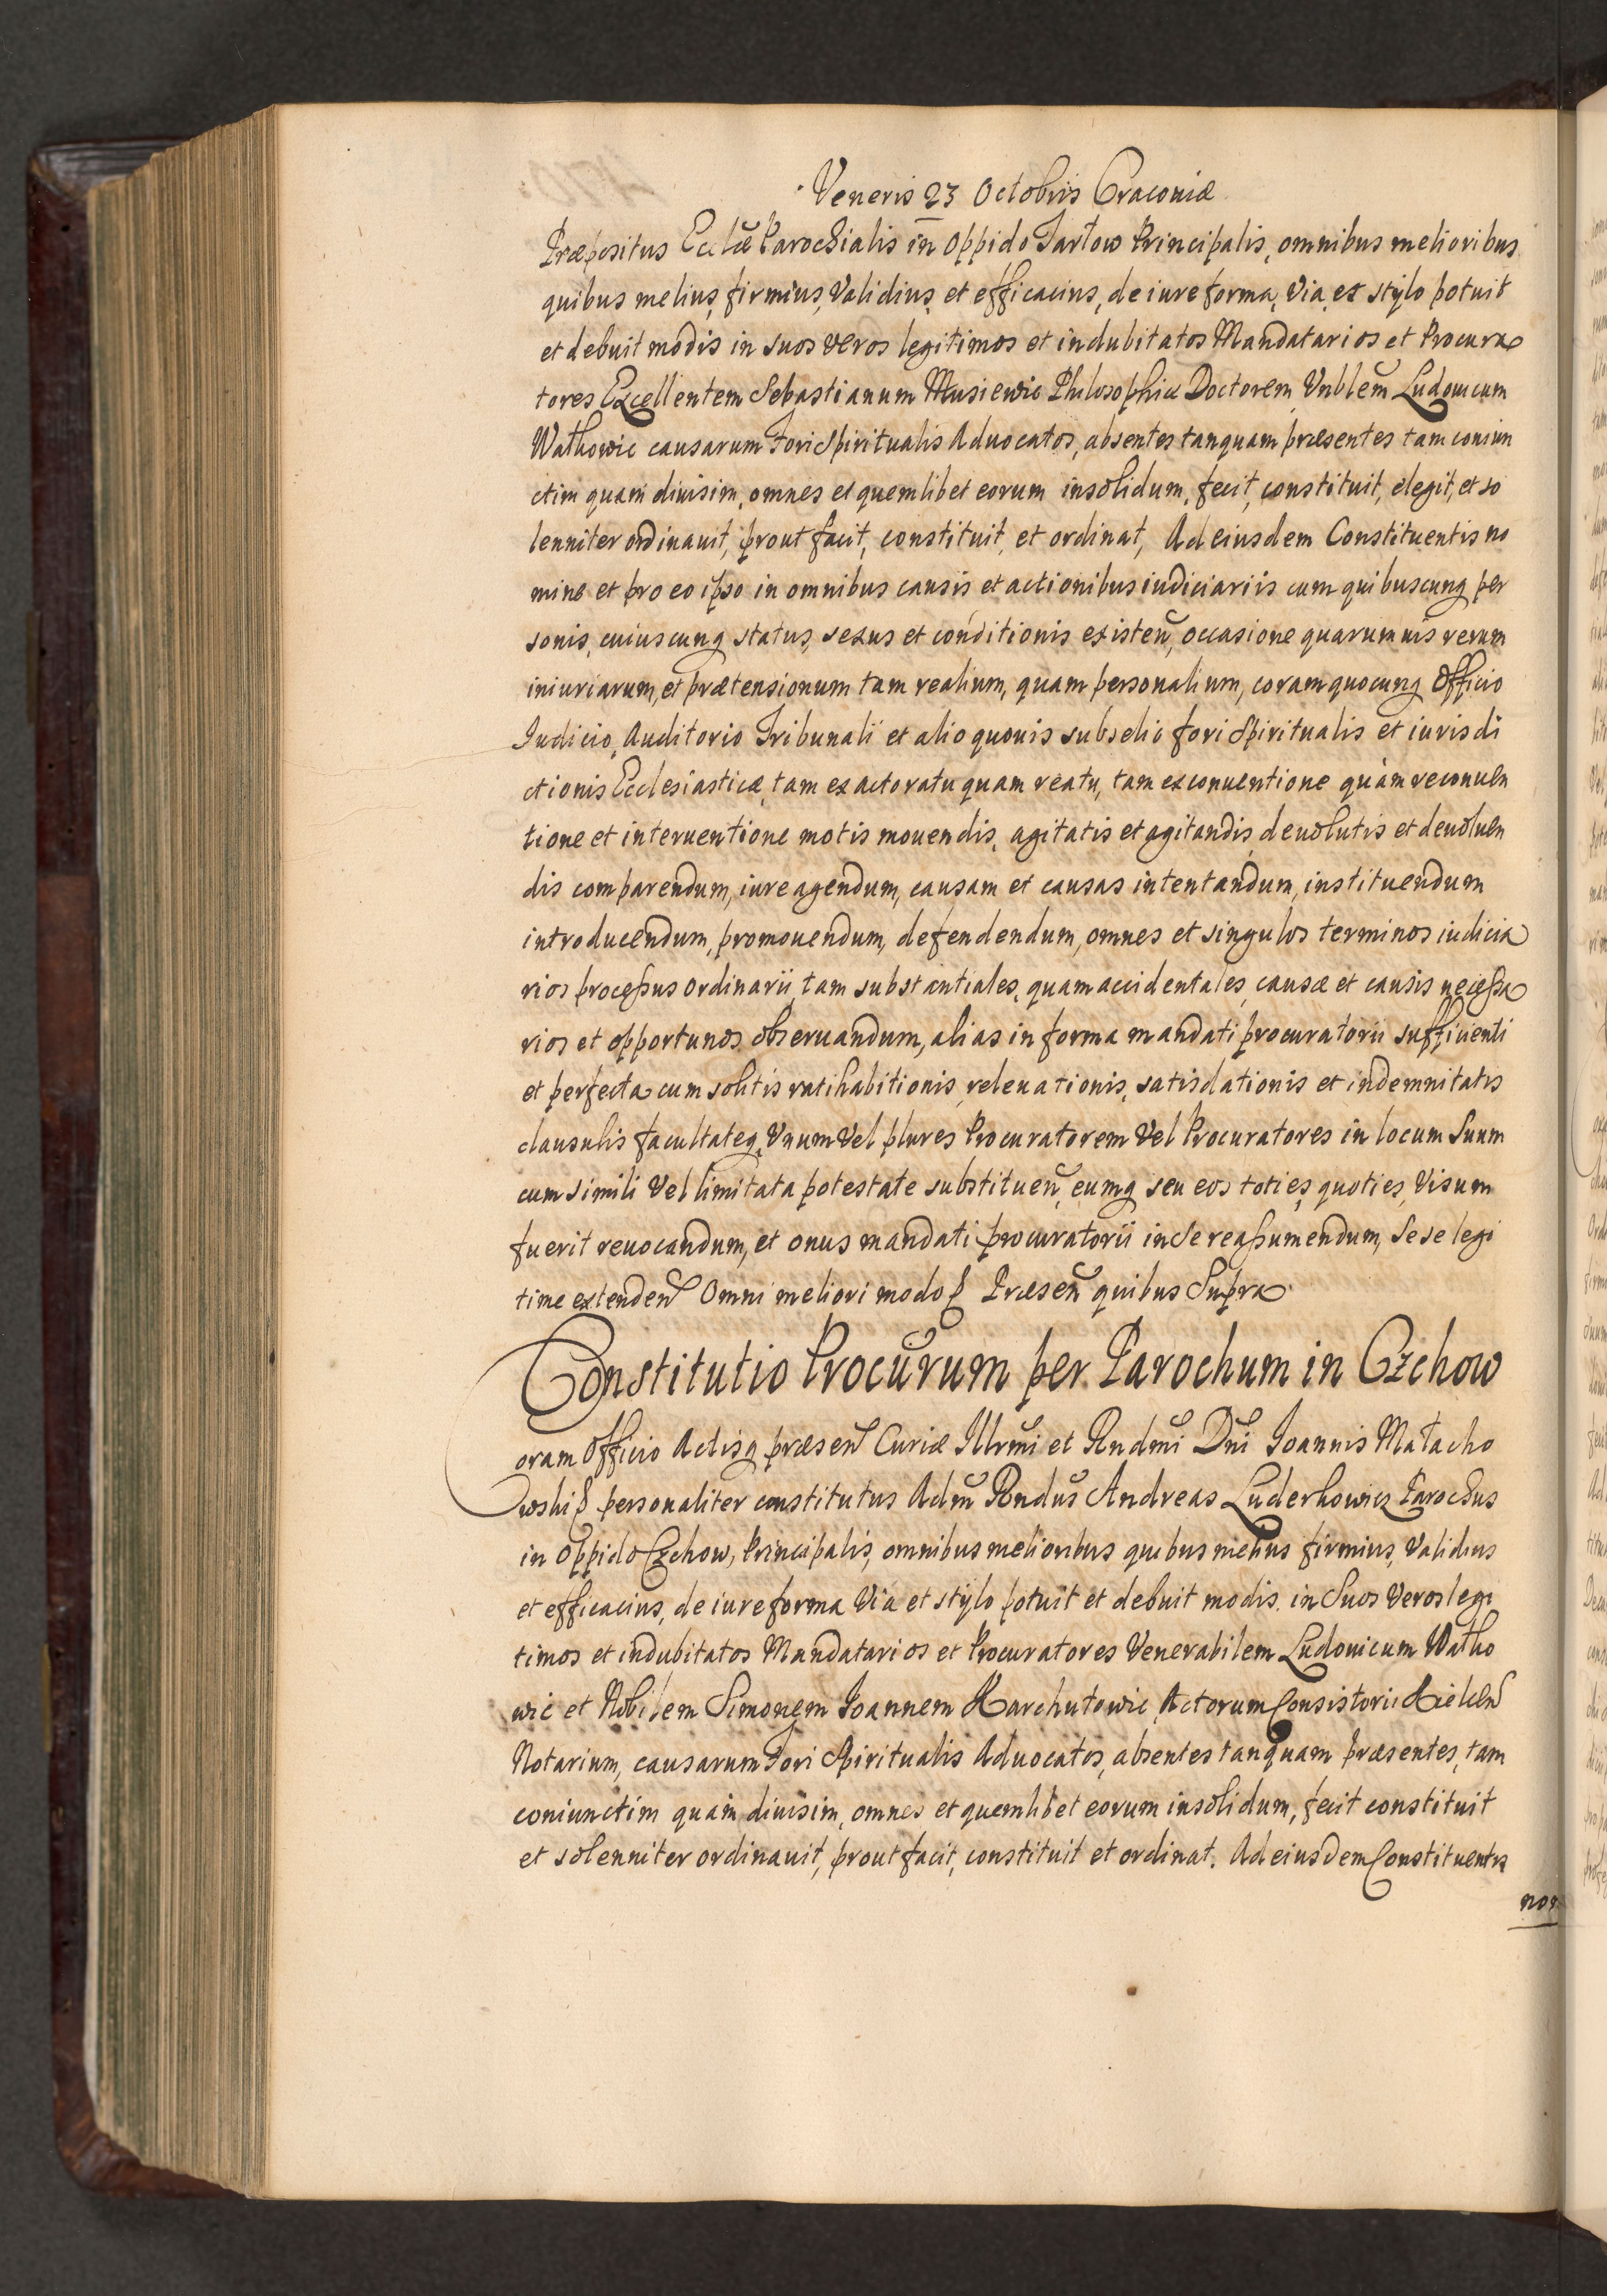 Veneris 23 Octobris Cracoviæ
Præpositus Ecclæ Parochialis in Oppido Tarłow Principalis, omnibus melioribus
quibus melius, firmius, Validius, et efficacius, de iure forma, Via, et stylo potuit
et debuit modis in suos veros legitimos et indubitatos Mandatarios et Procura
tores Excellentem Sebastianum Musiewic Philosophiæ Doctorem, Vnblem Ludovicum
Wathowic causarum Fori Spiritualis Aduocatos, absentes tanquam præsentes tam coniun
ctim quam diuisim, omnes et quemlibet eorum insolidum, fecit, constituit, elegit, et so
lenniter ordinauit, prout facit, constituit, et ordinat, Ad eiusdem Constituentis no
mine et pro eo ipso in omnibus causis et actionibus iudiciariis cum quibuscunq per
sonis, cuiuscunq status, sexus et conditionis existen, occasione quarumuis rerum
iniuriarum, et prætensionum tam realium, quam personalium, coram quocunq Officio
Iudicio, Auditorio Tribunali et alio quouis subselio fori Spiritualis et iurisdi
ctionis Ecclesiasticæ, tam ex actoratu quam reatu, tam ex conuentione quàm reconuen
tione et interuentione motis mouendis, agitatis et agitandis, deuolutis et deuoluen
dis comparendum, iure agendum, causam et causas intentandum, instituendum
introducendum, promouendum, defendendum, omnes et singulos terminos iudicia
rios processus ordinarii, tam substantiales, quam accidentales, causæ et causis necessa
rios et opportunos obseruandum, alias in forma mandati procuratorii sufficienti
et perfecta cum solitis ratihabitionis, releuationis, satisdationis et indemnitatis
clausulis facultateq, Vnum Vel plures Procuratorem Vel Procuratores in locum Suum
cum simili Vel limitata potestate substituen, eumq seu eos toties, quoties, Visum
fuerit reuocandum, et onus mandati procuratorii in Se reassumendum, Sese legi
time extenden Omni meliori modo Præsen quibus Supra
Constitutio Procurum per Parochum in Czchow
Coram Officio Actisq præsen Curiæ Illrmi et Rndmi Dni Ioannis Małacho
wski personaliter constitutus Adm Rndus Andreas Luderhowicz Parochus
in Oppido Czchow, Principalis, omnibus melioribus quibus melius firmius, Validius
et efficacius, de iure forma Via et stylo potuit et debuit modis in Suos Veros legi
timos et indubitatos Mandatarios et Procuratores Venerabilem Ludouicum Watho
wic et Nobilem Simonem Ioannem Karchutowic Actorum Consistorii Kielcen
Notarium, causarum Fori Spiritualis Aduocatos, absentes tanquam præsentes, tam
coniunctim quam diuisim, omnes et quemlibet eorum insolidum, fecit constituit
et solenniter ordinauit, prout facit, constituit et ordinat. Ad eiusdem Constituentis